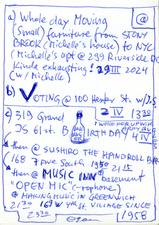 a) Whole day Moving @
(small) furniture from STONY
BROOK (Michelle's house) to NYC
Michelle's apt @ 299 RIVERSIDE DR
Kinda exhausting! 29 III 2024
(w/ Michelle)
b) VOTING @ 100 Henry St w/
c) 319 Grand 2 IV 1330
JS 61st BIRTHDAY
then @ SUSHIRO THE HANDROLL BAR
168 7 ave South 1950 - 2115
then @ MUSIC INN @ Basement
"OPEN MIC" (-rophone)
@ MAKING MUSIC IN GREENWICH
2130 167 W 4th st VILLAGE SINCE
2330 1958